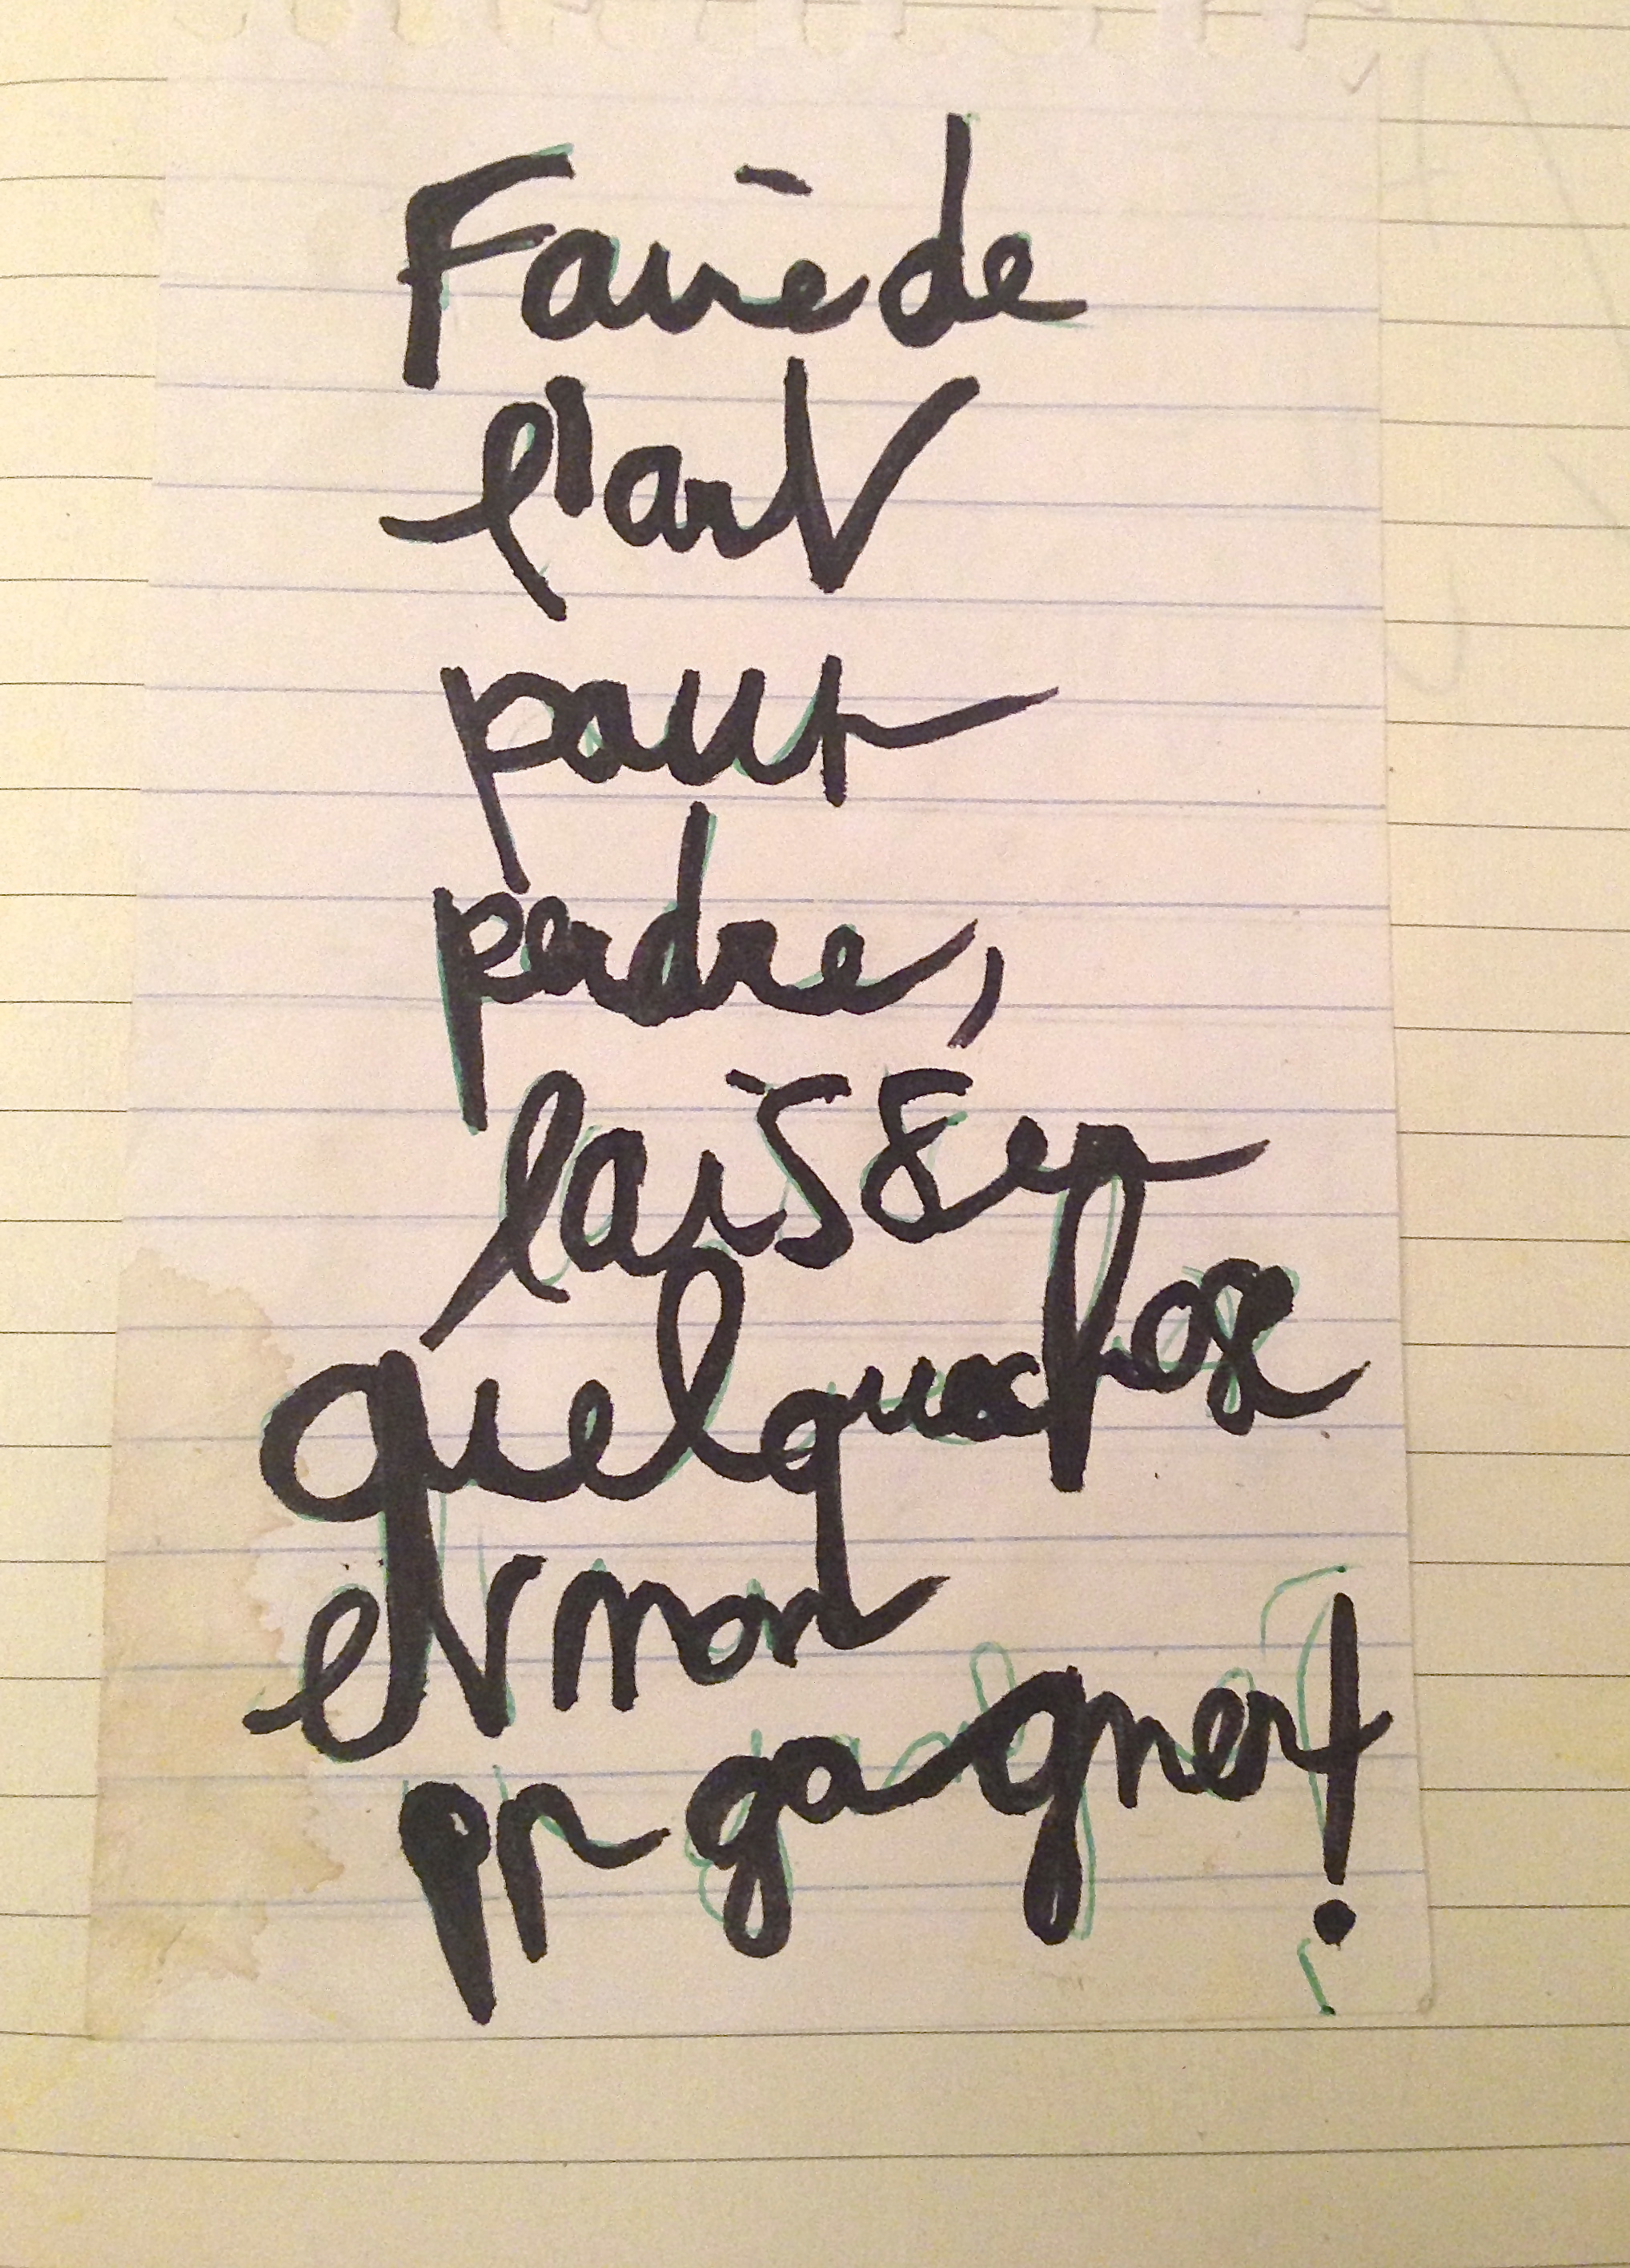 Faire de
l'art
pour
perdre,
laisser
quelque chose
et non
pr gagner!